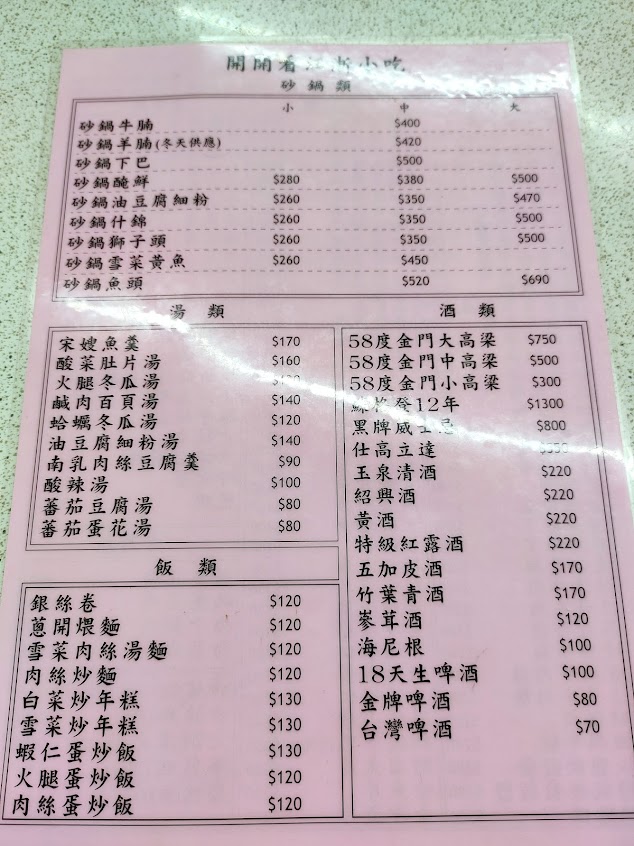 開開看江浙小吃
砂鍋類
小 中 大
砂鍋牛腩 $400
砂鍋羊腩(冬天供應) $420
砂鍋下巴 $500
砂鍋醃鮮 $280 $380 $500
砂鍋油豆腐細粉 $260 $350 $470
砂鍋什錦 $260 $350 $500
砂鍋獅子頭 $260 $350 $500
砂鍋雪菜黃魚 $260 $450
砂鍋魚頭 $520 $690
湯類
宋嫂魚羹 $170
酸菜肚片湯 $160
火腿冬瓜湯
鹹肉百頁湯 $140
蛤蠣冬瓜湯 $120
油豆腐細粉湯 $140
南乳肉絲豆腐羹 $90
酸辣湯 $100
蕃茄豆腐湯 $80
蕃茄蛋花湯 $80
飯類
銀絲卷 $120
蔥開煨麵 $120
雪菜肉絲湯麵 $120
肉絲炒麵 $120
白菜炒年糕 $130
雪菜炒年糕 $130
蝦仁蛋炒飯 $130
火腿蛋炒飯 $120
肉絲蛋炒飯 $120
酒類
58度金門大高梁 $750
58度金門中高梁 $500
58度金門小高梁 $300
蘇格登12年 $1300
黑牌威士忌 $800
仕高立達
玉泉清酒 $220
紹興酒 $220
黃酒 $220
特級紅露酒 $220
五加皮酒 $170
竹葉青酒 $170
蔘茸酒 $120
海尼根 $100
18天生啤酒 $100
金牌啤酒 $80
台灣啤酒 $70